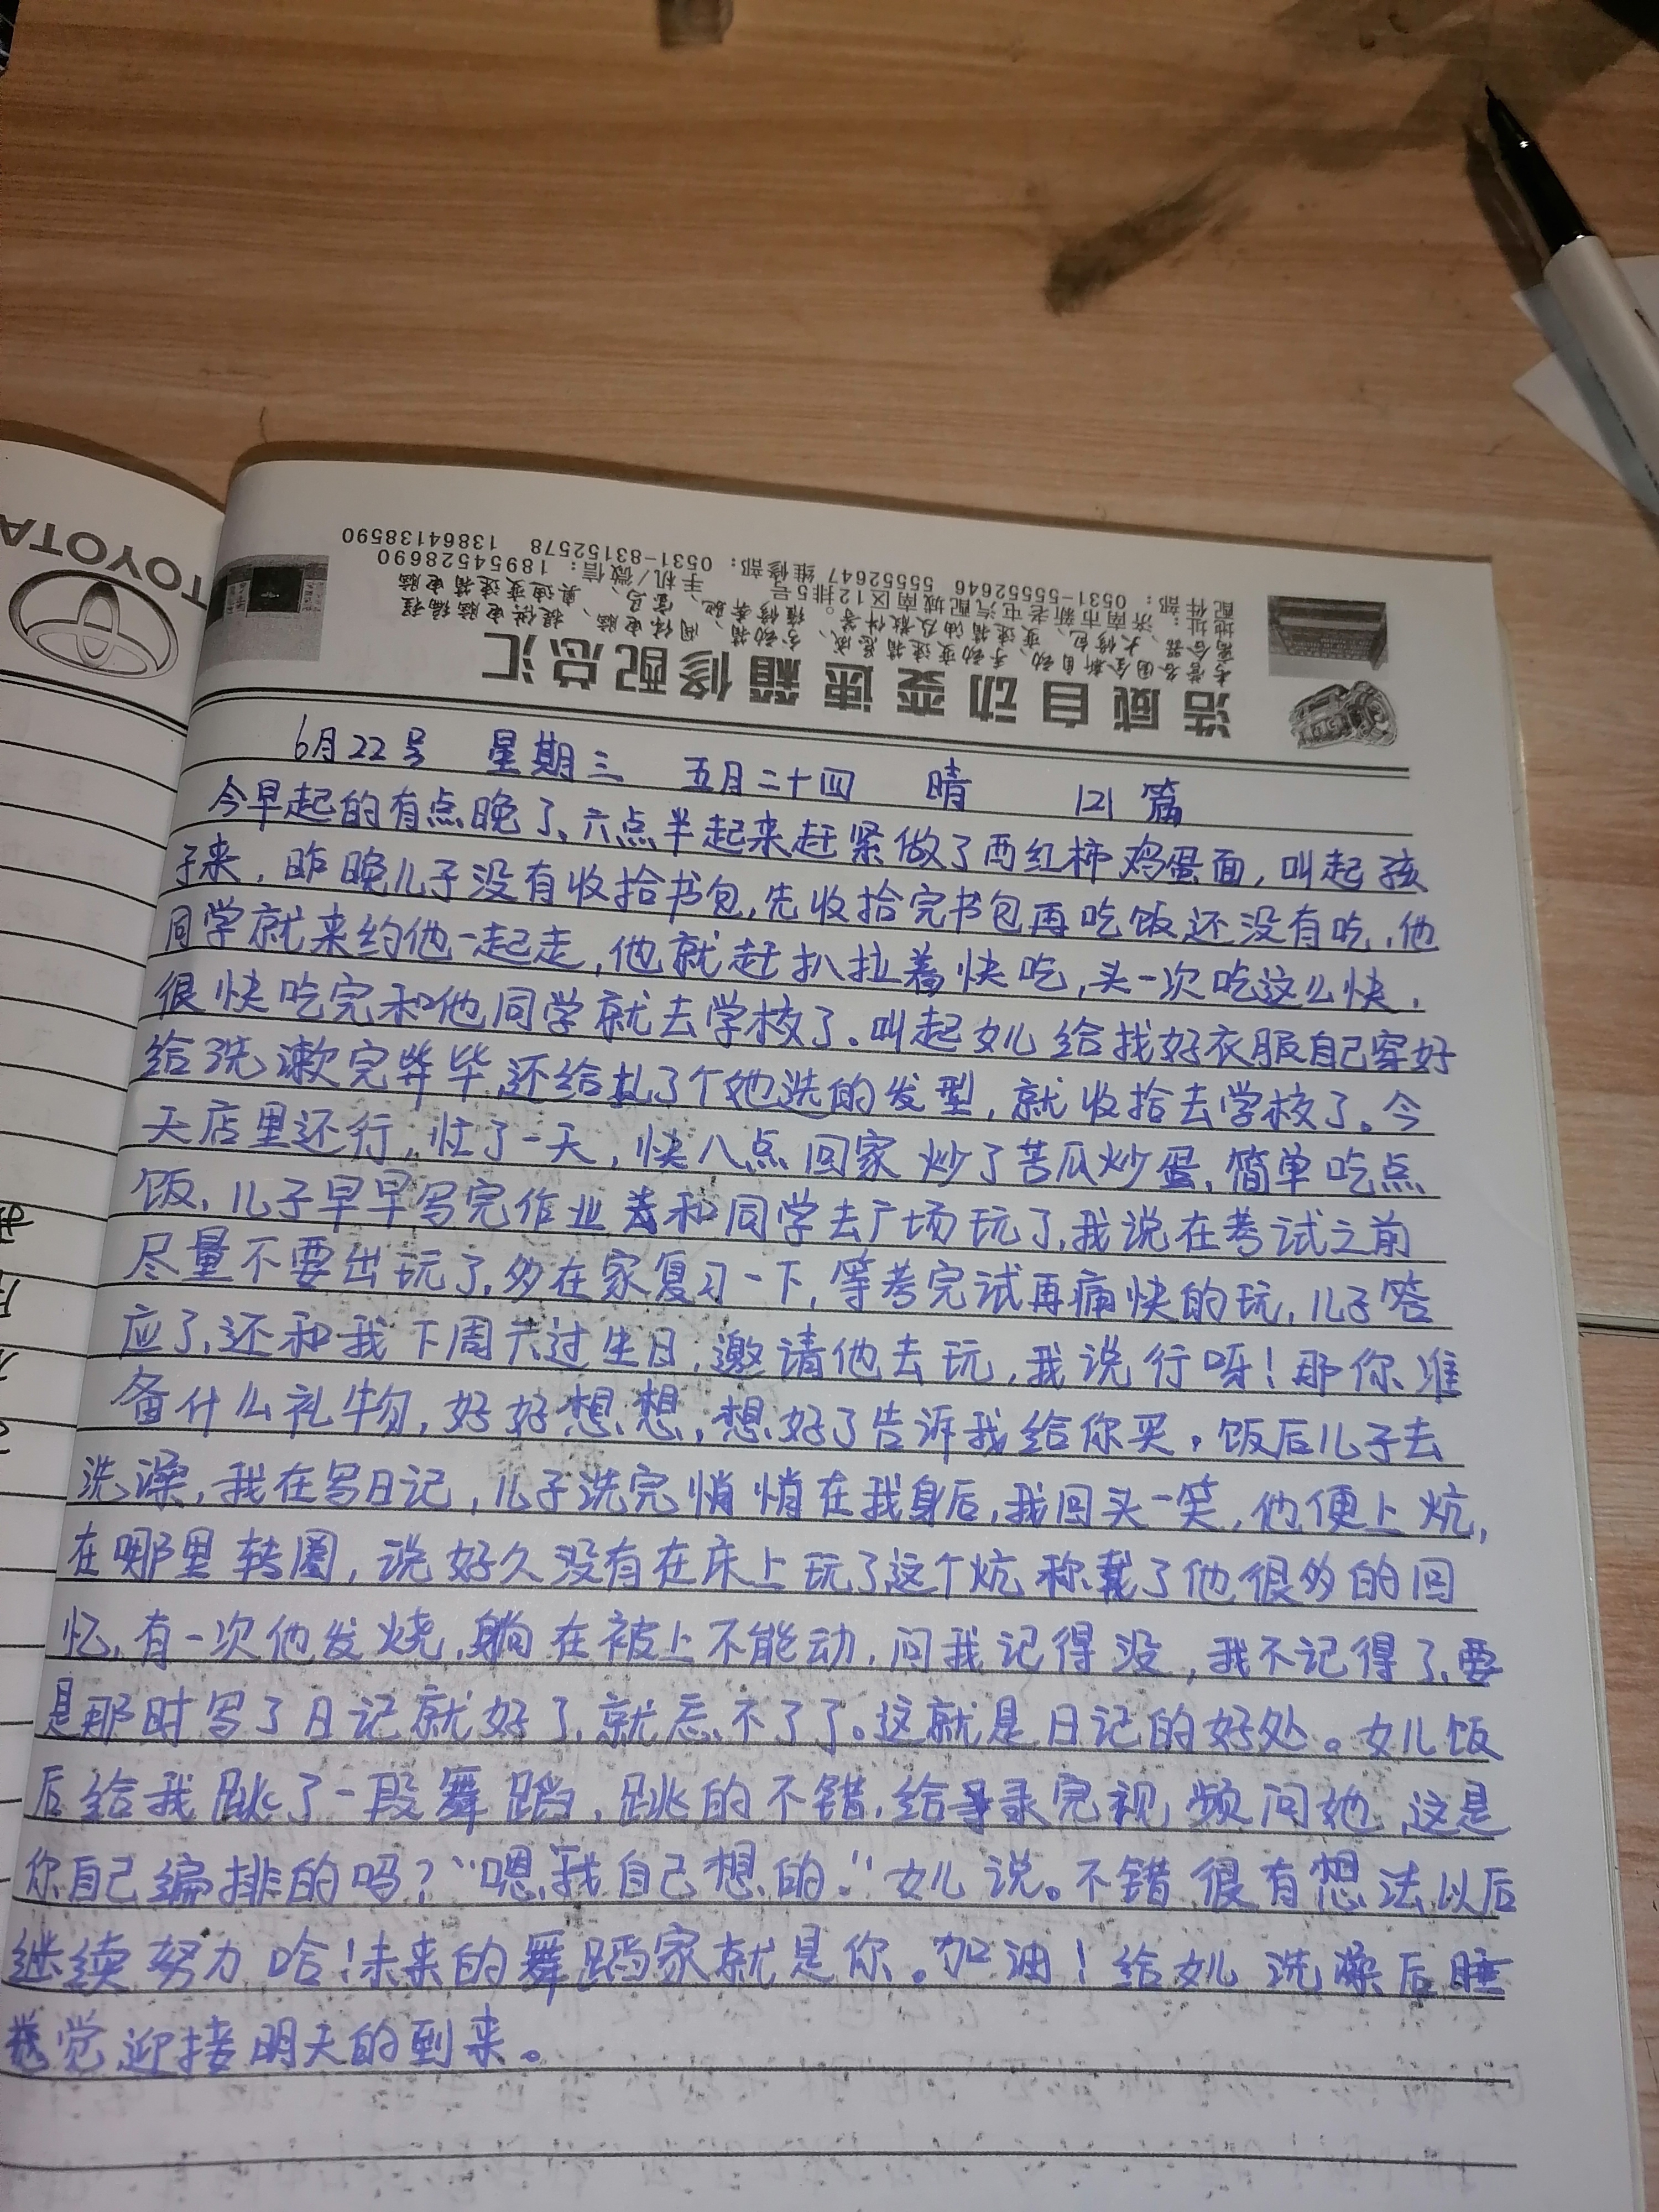 TOYOTA
浩威自动变速箱修配总汇
配件部：0531-55552646 55552647 维修部：0531-83152578 13864138590
手机/微信：18954528690
6月22号 星期三 五月二十四 晴 121篇
今早起的有点晚了、六点半起来赶紧做了西红柿鸡蛋面，叫起孩
子来，昨晚儿子没有收拾书包，先收拾完书包再吃饭还没有吃，他
同学就来约他一起走，他就赶扒拉着快吃，头一次吃这么快，
很快吃完和他同学就去学校了。叫起女儿给找好衣服自己穿好
给洗漱完毕，还给扎了个她选的发型，就收拾去学校了。今
天店里还行，忙了一天，快八点回家炒了苦瓜炒蛋，简单吃点
饭，儿子早早写完作业和同学去广场玩了，我说在考试之前
尽量不要出玩了，多在家复习一下，等考完试再痛快的玩，儿子答
应了，还和我下周六过生日，邀请他去玩，我说行呀！那你准
备什么礼物，好好想想，想好了告诉我给你买。饭后儿子去
洗澡，我在写日记，儿子洗完悄悄在我身后，我回头一笑，他便上炕，
在哪里转圈，说好久没有在床上玩了这个炕称载了他很多的回
忆，有一次他发烧，躺在被上不能动，问我记得没，我不记得了，要
是那时写了日记就好了，就忘不了了。这就是日记的好处。女儿饭
后给我跳了一段舞蹈，跳的不错，给录完视频问她，这是
你自己编排的吗？“嗯，我自己想的。”女儿说。不错很有想法以后
继续努力哈！未来的舞蹈家就是你。加油！给女儿洗澡后睡
觉迎接明天的到来。